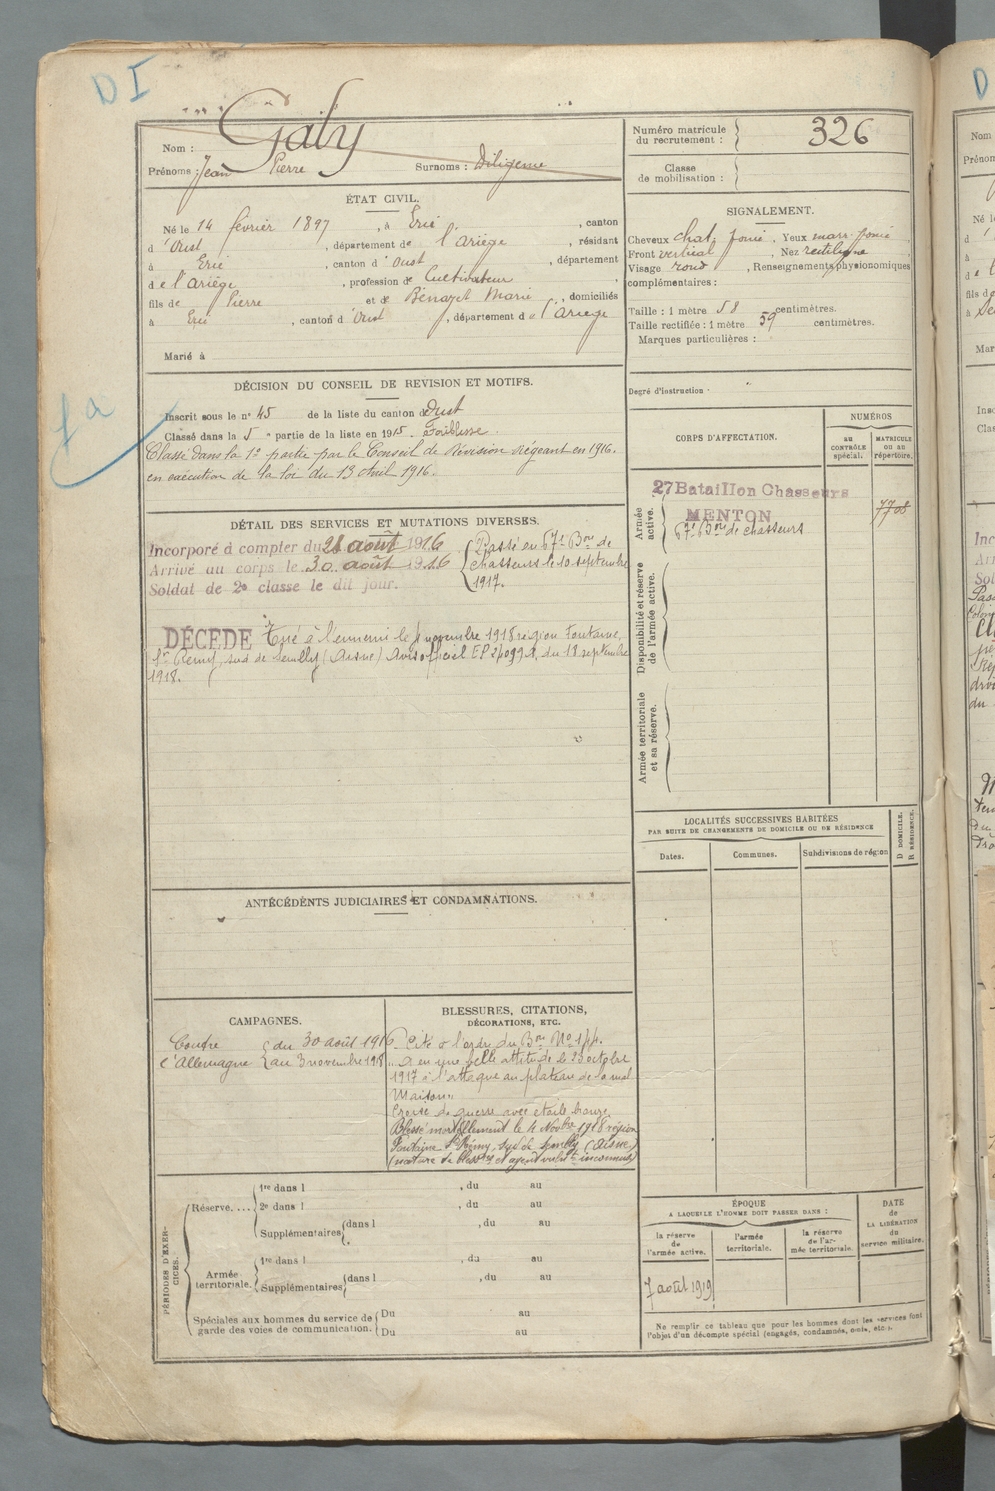 D I
Nom : Galy
Prénoms : Jean Pierre Surnoms : Diligeme
Numéro matricule du recrutement : 326
Classe de mobilisation :
ÉTAT CIVIL.
Né le 14 février 1897, à Ercé, canton
d'Oust, département de l'Ariège, résidant
à Ercé, canton d'Oust, département
de l'Ariège, profession de Cultivateur
fils de Pierre et de Bénazet Marie, domiciliés
à Ercé, canton d'Oust, département de l'Ariège
Marié à
SIGNALEMENT.
Cheveux chat. foncé, Yeux marr. foncé
Front vertical, Nez rectiligne
Visage rond, Renseignements physionomiques
complémentaires :
Taille : 1 mètre 58 centimètres.
Taille rectifiée : 1 mètre 59 centimètres.
Marques particulières :
Degré d'instruction :
DÉCISION DU CONSEIL DE REVISION ET MOTIFS.
Inscrit sous le n° 45 de la liste du canton d'Oust
Classé dans la 5e partie de la liste en 1915. Faiblesse
Classé dans la 1e partie par le Conseil de Révision siégeant en 1916.
en exécution de la loi du 13 Avril 1916.
CORPS D'AFFECTATION.
NUMÉROS
AU CONTRÔLE spécial.
MATRICULE OU AU répertoire.
Armée active.
27 Bataillon Chasseurs
MENTON
67e Bon de chasseurs
7708
Disponibilité et réserve de l'armée active.
Armée territoriale et sa réserve.
DÉTAIL DES SERVICES ET MUTATIONS DIVERSES.
Incorporé à compter du 28 août 1916
Arrivé au corps le 30 août 1916
Soldat de 2e classe le dit jour.
Passé en 67e Bon de
chasseurs le 10 septembre
1917.
DÉCÉDÉ Tué à l'ennemi le 4 novembre 1918 région Fontaine,
St Remy, sud de (Aisne) Avis officiel du 18 septembre
1918.
LOCALITÉS SUCCESSIVES HABITÉES
PAR SUITE DE CHANGEMENTS DE DOMICILE OU DE RÉSIDENCE
Dates.
Communes.
Subdivisions de région
D DOMICILE.
R RÉSIDENCE.
ANTÉCÉDENTS JUDICIAIRES ET CONDAMNATIONS.
CAMPAGNES.
Contre du 30 août 1916
l'Allemagne au 3 novembre 1918
BLESSURES, CITATIONS,
DÉCORATIONS, ETC.
Cité à l'ordre du Bon
"A eu une belle attitude le 23 octobre
1917 à l'attaque au plateau de la mal
Maison"
Croix de guerre avec étoile bronze
Blessé mortellement le 4 Novbre 1918 région
Fontaine St Rémy, sud de (Aisne)
(nature de blessures et agent inconnus)
PÉRIODES D'EXERCICES.
Réserve....
1re dans l , du au
2e dans l , du au
Supplémentaires dans l , du au
Armée territoriale.
1re dans l , du au
Supplémentaires dans l , du au
Spéciales aux hommes du service de garde des voies de communication.
Du au
Du au
ÉPOQUE
A LAQUELLE L'HOMME DOIT PASSER DANS :
la réserve de l'armée active.
l'armée territoriale.
la réserve de l'armée territoriale.
DATE de LA LIBÉRATION du service militaire.
7 août 1919
Ne remplir ce tableau que pour les hommes dont les services font
l'objet d'un décompte spécial (engagés, condamnés, omis, etc.).